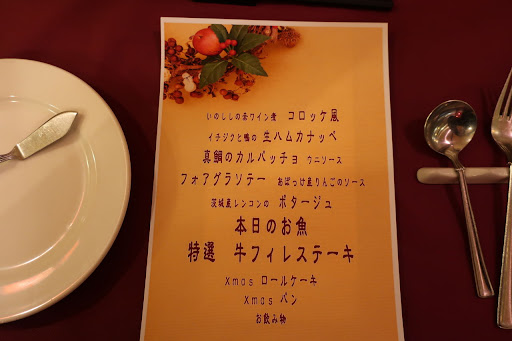 いのししの赤ワイン煮 コロッケ風
イチジクと鴨の 生ハムカナッペ
真鯛のカルパッチョ ウニソース
フォアグラソテー あぽっけ産りんごのソース
茨城産レンコンの ポタージュ
本日のお魚
特選 牛フィレステーキ
Xmas ロールケーキ
Xmas パン
お飲み物